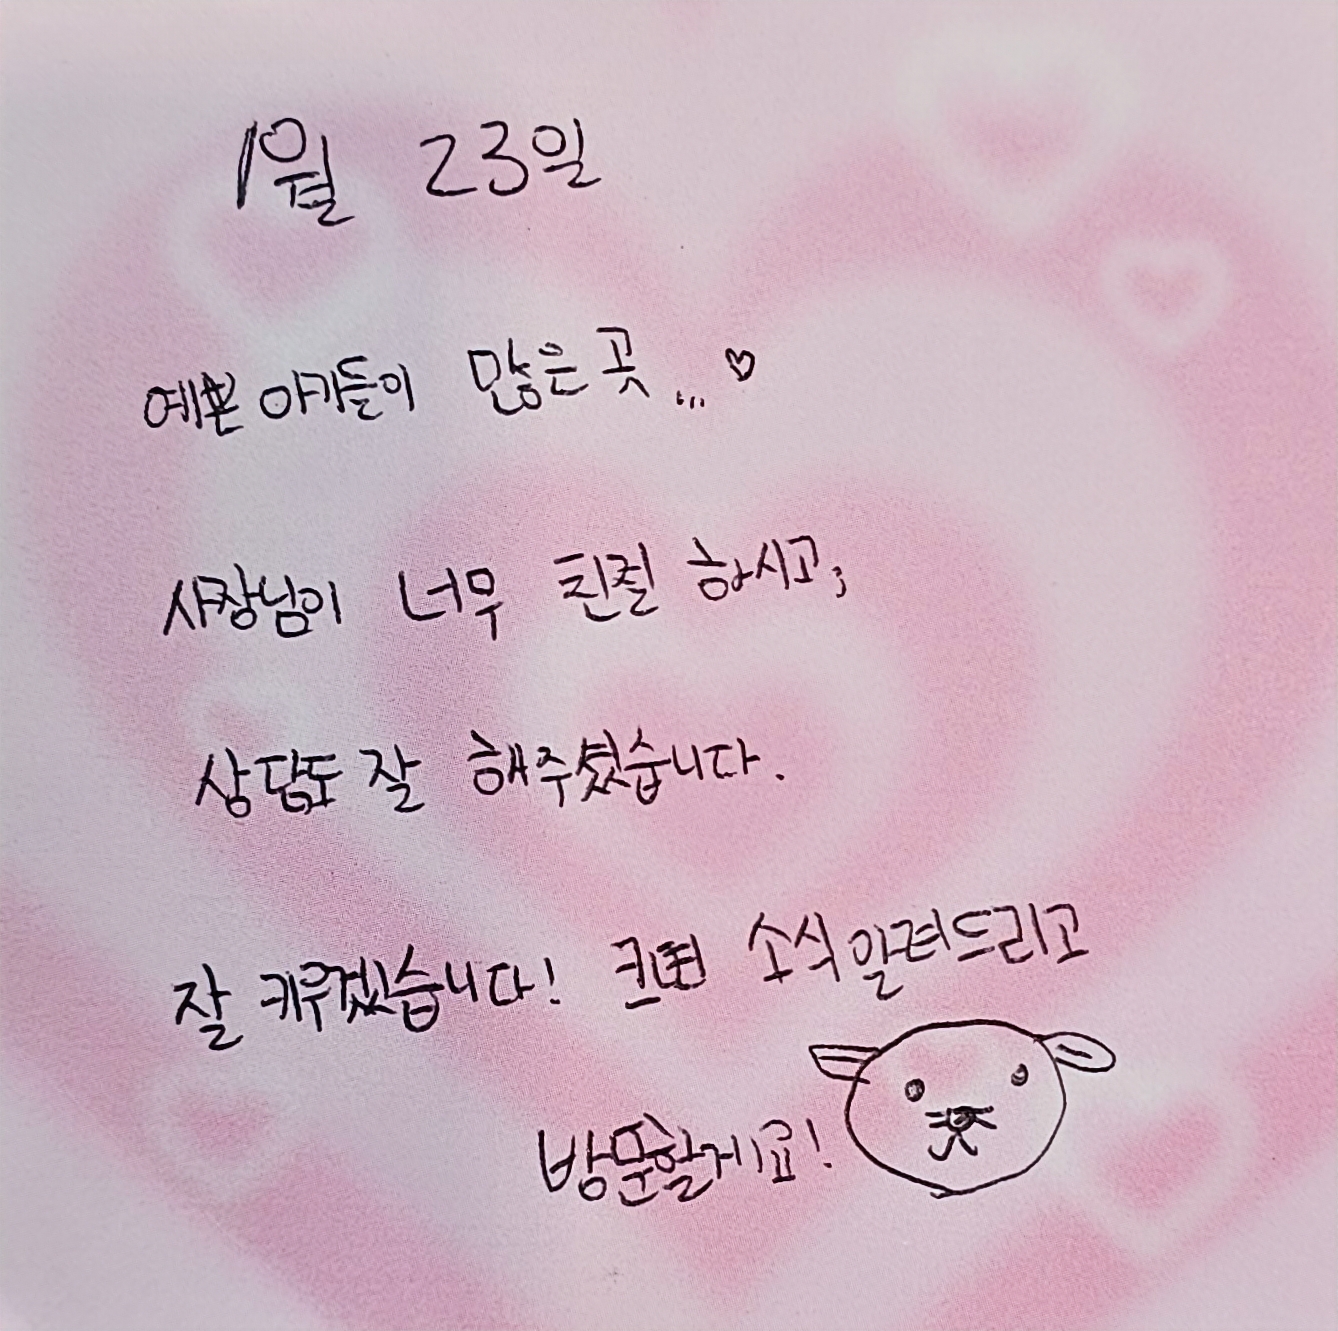 1월 23일
예쁜 아가들이 많은 곳...♡
사장님이 너무 친절 하시고,
상담도 잘 해주셨습니다.
잘 키우겠습니다! 크면 소식 알려드리고
방문할게요!